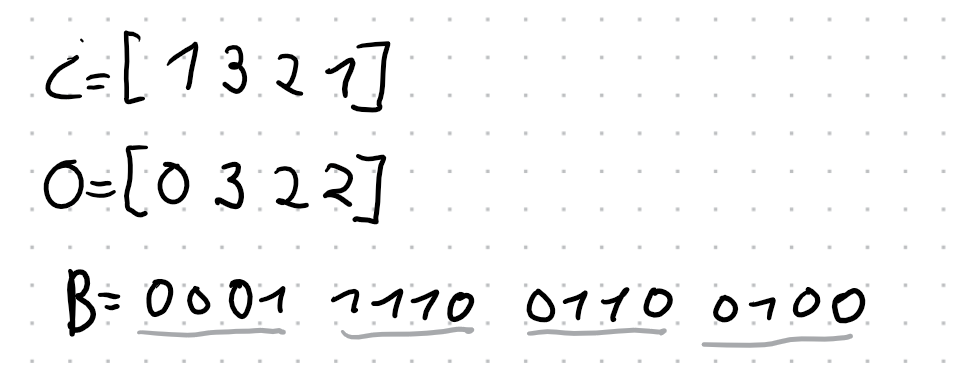 C=[ 1 3 2 1]
O=[0 3 2 2]
B= 0001 1110 0110 0100